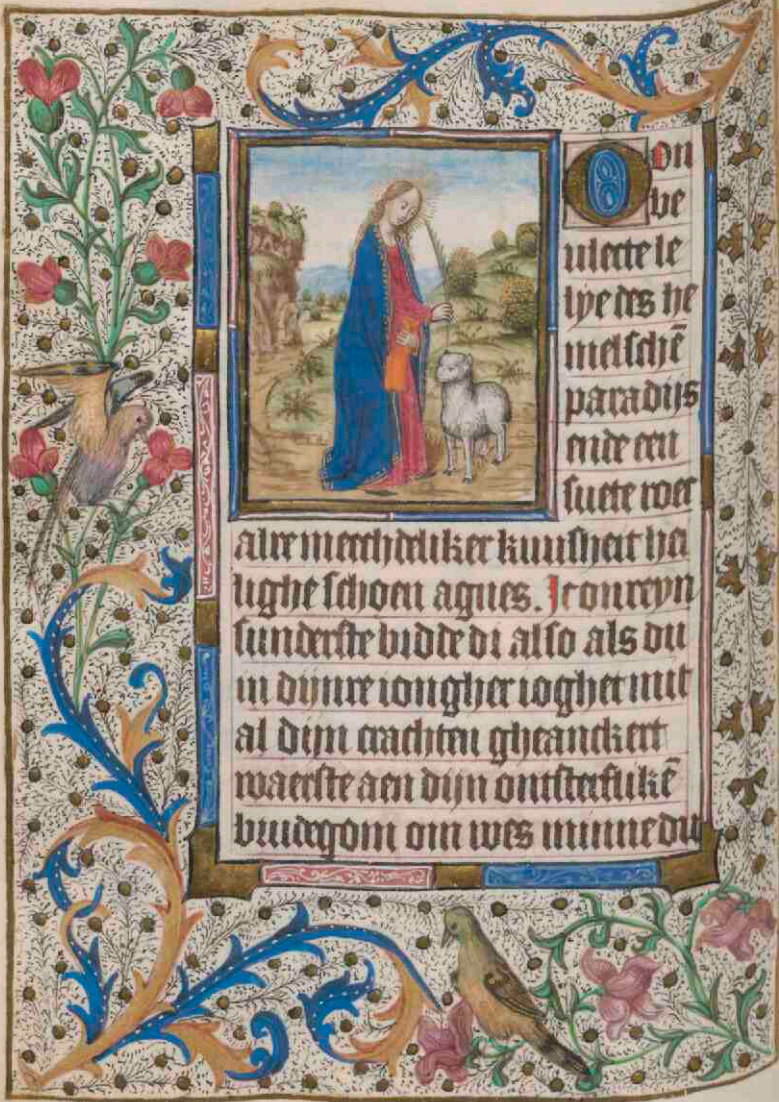 O on
be
ulecte le
lye des he
melschē
paradijs
ende een
suete
alre meechdeliker kuusheit hei
lighe schoen agnes. Ic onreyn
sunderste bidde di also als du
in dijnre iongher ioghet mit
al dijn crachten gheanckert
waerste aen dijn ontsterflikē
brudegom om wes minne du